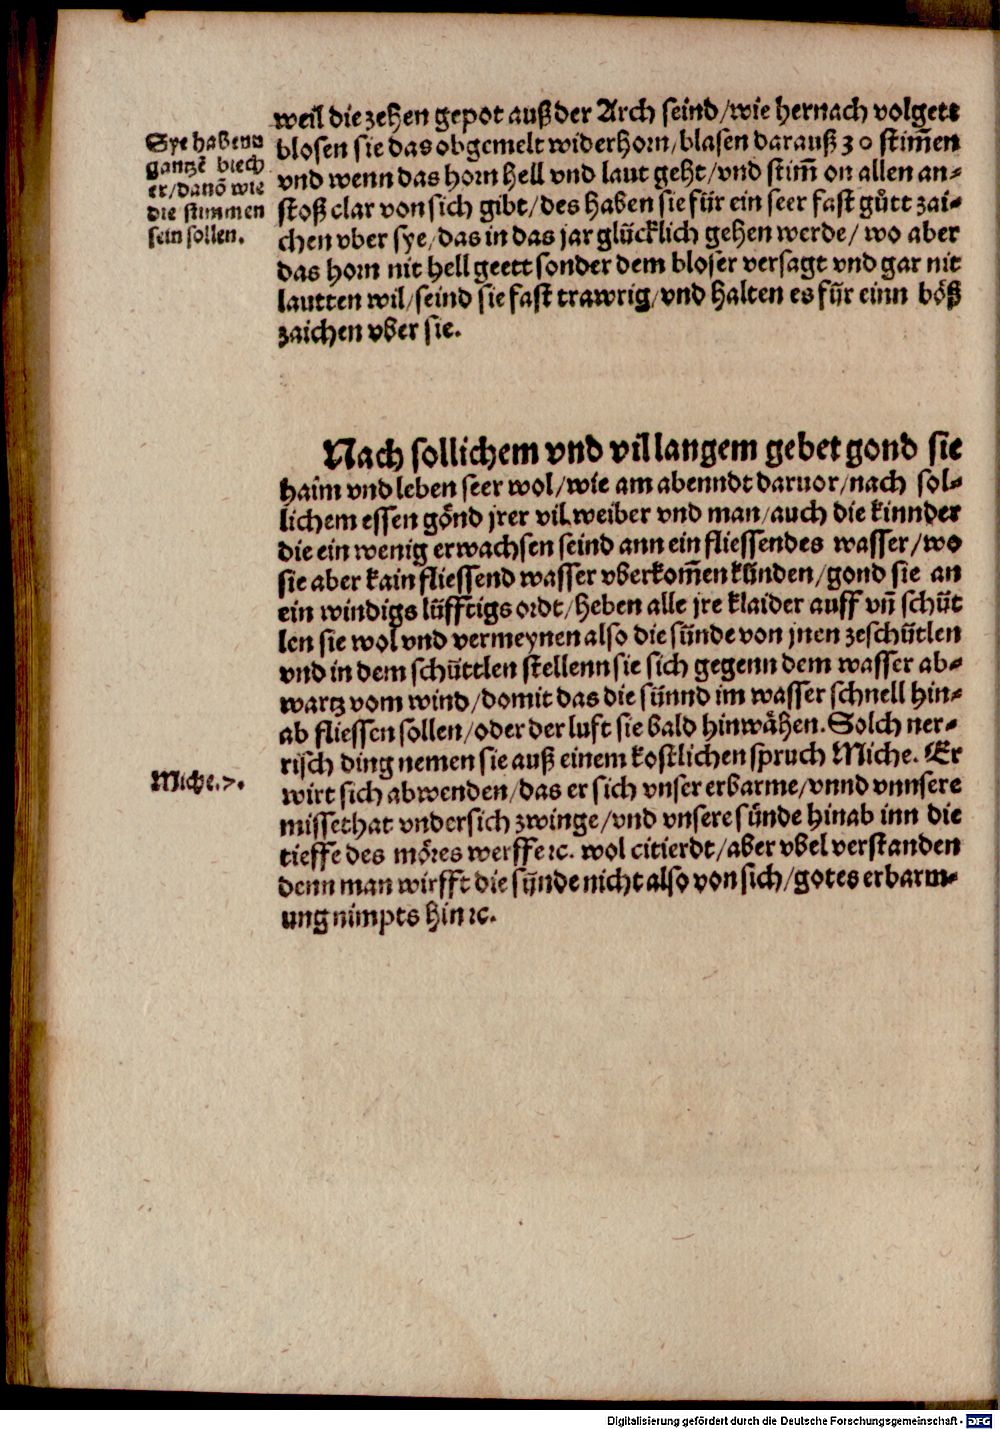 weil die zehen gepot auß der Arch seind/wie hernach volgett
blosen sie das obgemelt widerhorn/blasen darauß 30 stim̃en
vnd wenn das horn hell vnd laut geht/vnd stim̃ on allen an-
stoß clar von sich gibt/des haben sie für ein seer fast gůtt zai-
chen vber sye/das in das jar glücklich gehen werde/ wo aber
das horn nit hell geett sonder dem bloser versagt vnd gar nit
lautten wil/seind sie fast trawrig/vnd halten es für einn böß
zaichen vber sie.
Sye haben
gantzē biech
er/danō wie
die stimmen
sein sollen.
Nach sollichem vnd vil langem gebet gond sie
haim vnd leben seer wol/wie am abenndt daruor/nach sol-
lichem essen gönd jrer vil weiber vnd man/auch die kinnder
die ein wenig erwachsen seind ann ein fliessendes wasser/wo
sie aber kain fliessend wasser vberkom̃en künden/gond sie an
ein windigs lüfftigs ordt/heben alle jre klaider auff vñ schüt
len sie wol vnd vermeynen also die sünde von jnen zeschütlen
vnd in dem schüttlen stellenn sie sich gegenn dem wasser ab-
wartz vom wind/domit das die sünnd im wasser schnell hin-
ab fliessen sollen/oder der luft sie bald hinwähen. Solch ner-
risch ding nemen sie auß einem kostlichen spruch Miche. Er
wirt sich abwenden/das er sich vnser erbarme/vnnd vnnsere
missethat vndersich zwinge/vnd vnsere sünde hinab inn die
tieffe des möres werffe ꝛc. wol citierdt/aber vbel verstanden
denn man wirfft die sünde nicht also von sich/gotes erbarm-
ung nimpts hin ꝛc.
Miche.7.
Digitalisierung gefördert durch die Deutsche Forschungsgemeinschaft - DFG